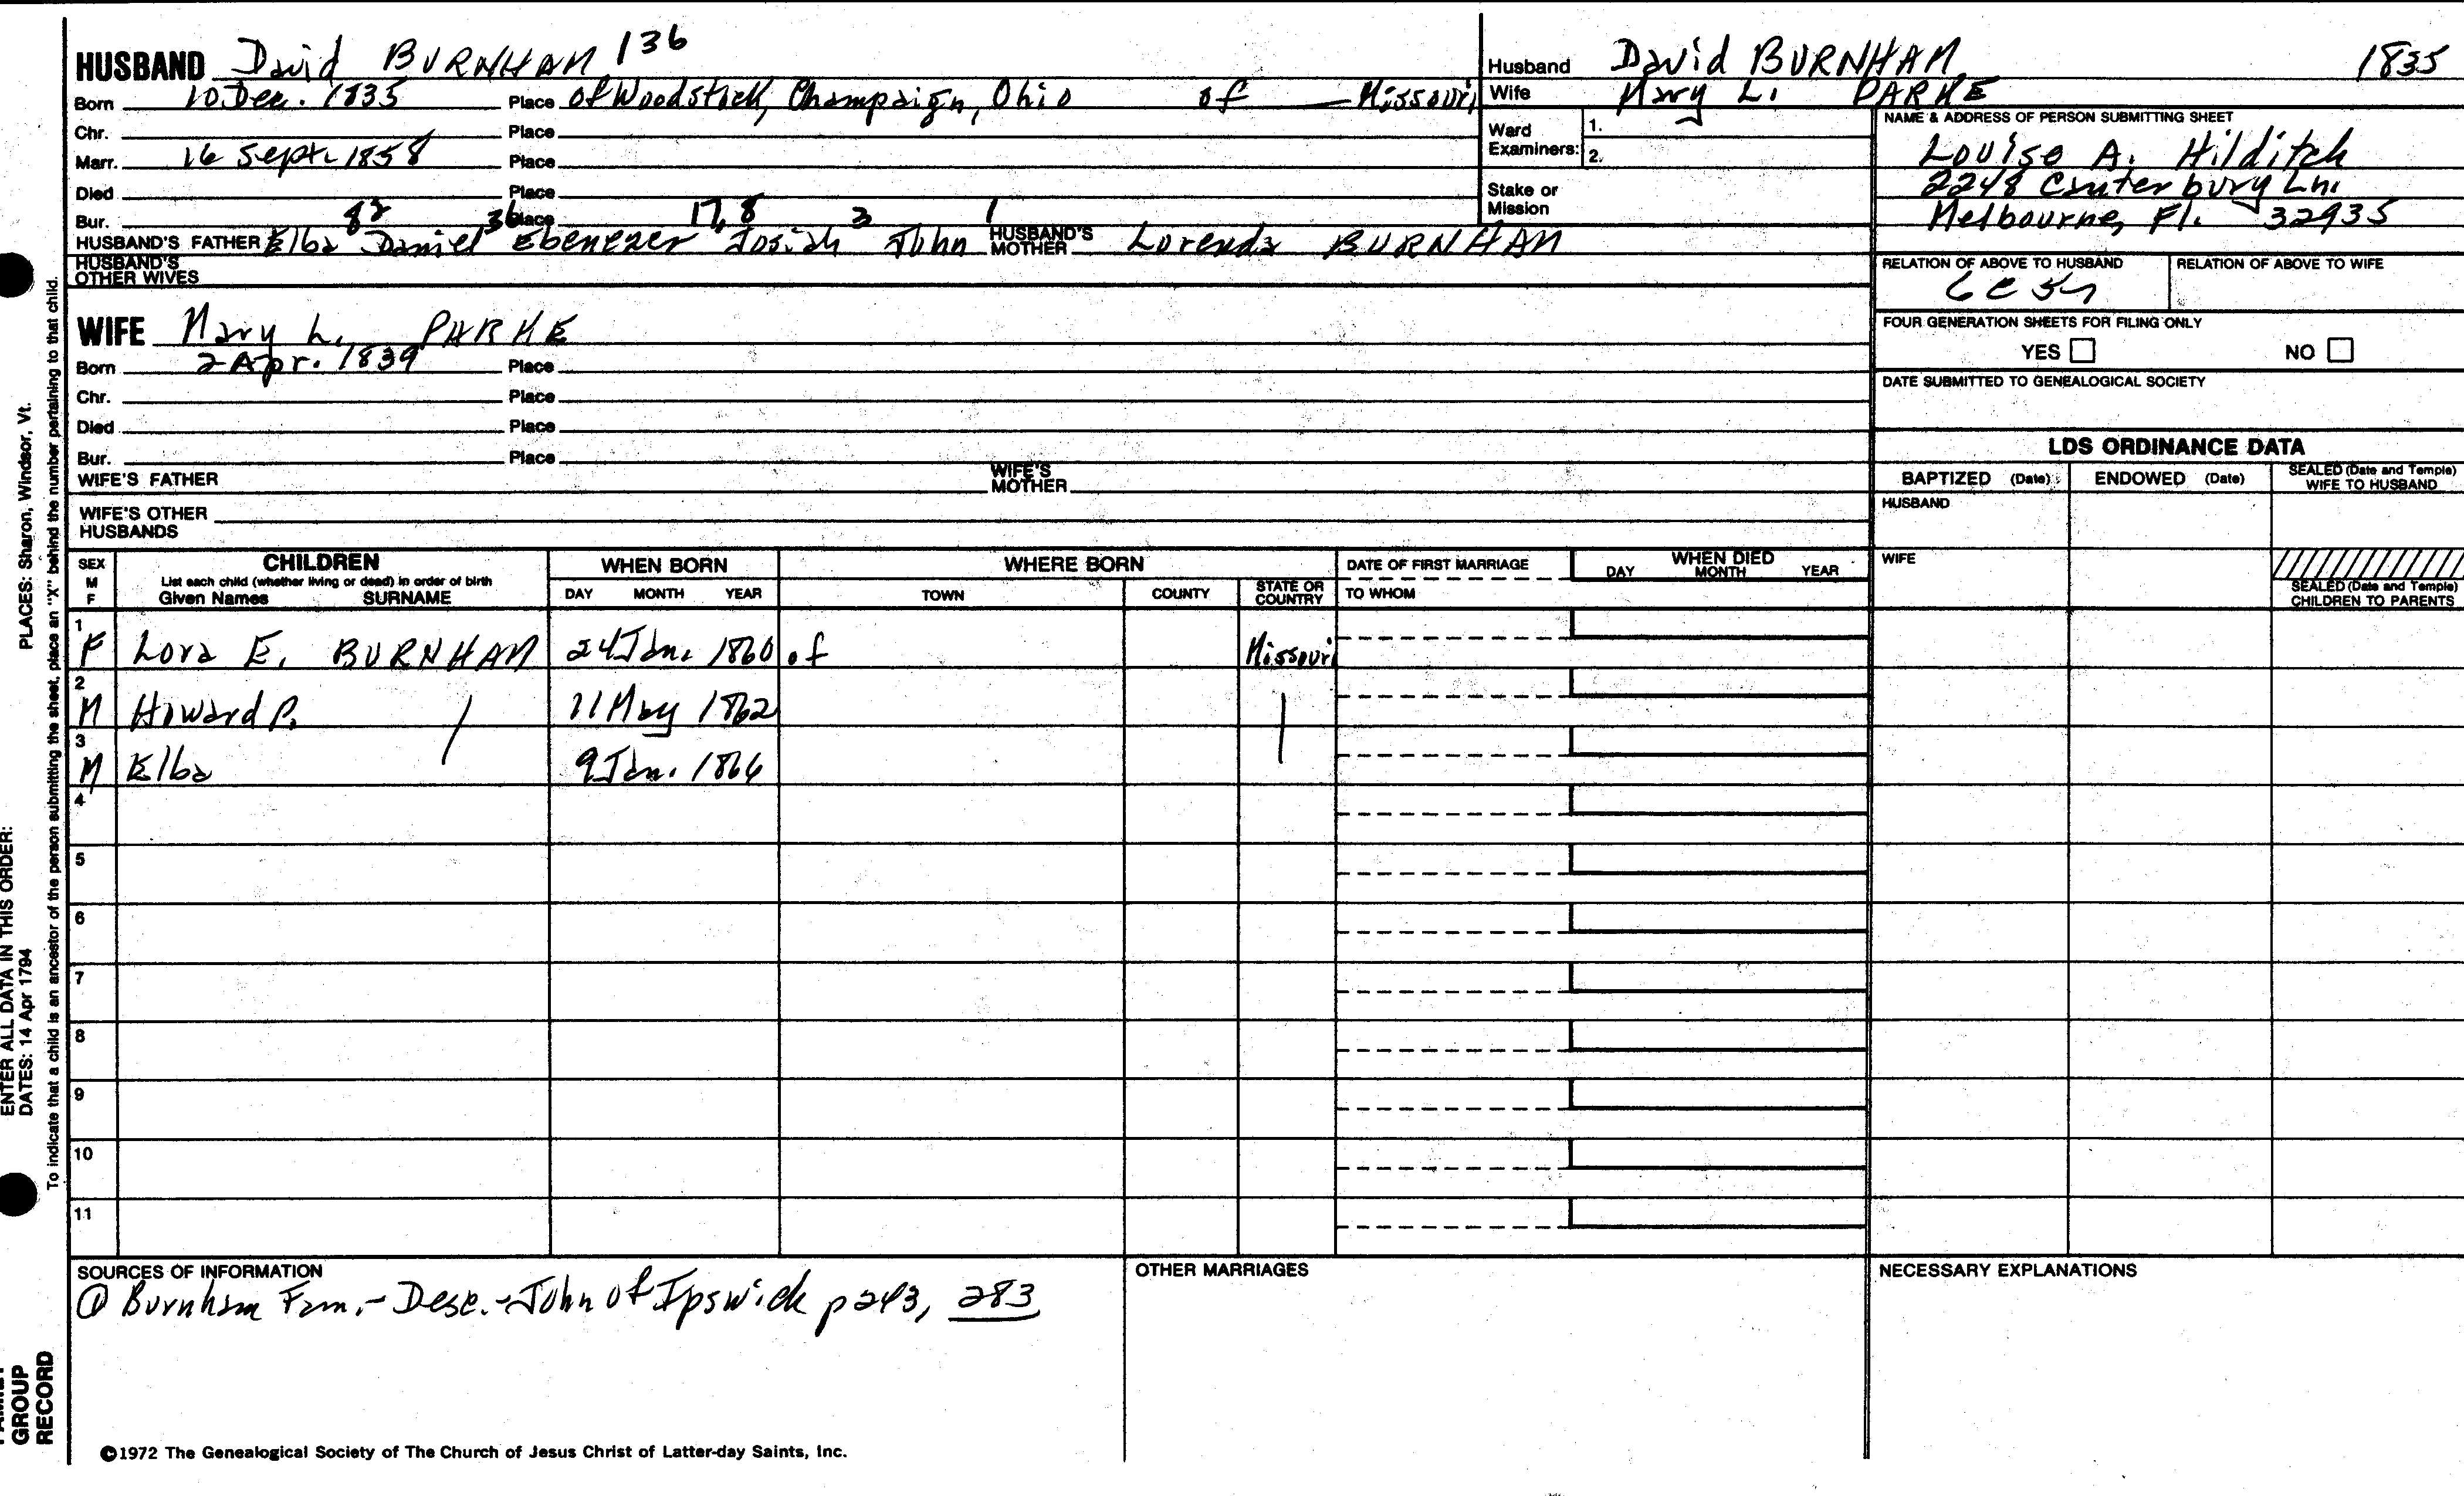 HUSBAND David BURNHAM 136
Born 10 Dec. 1835 Place of Woodstock, Champaign, Ohio of — Missouri
Chr. Place
Marr. 16 Sept. 1858 Place
Died Place
Bur. Place
82 36 17, 8 3 1
HUSBAND'S FATHER Elba Daniel Ebenezer Josiah John HUSBAND'S MOTHER Lorenda BURNHAM
HUSBAND'S OTHER WIVES
WIFE Mary L. PARKE
Born 2 Apr. 1839 Place
Chr. Place
Died Place
Bur. Place
WIFE'S FATHER WIFE'S MOTHER
WIFE'S OTHER HUSBANDS
Husband David BURNHAM 1835
Wife Mary L. PARKE
Ward Examiners: 1.
2.
Stake or Mission
NAME & ADDRESS OF PERSON SUBMITTING SHEET
Louise A. Hilditch
2248 Canterbury Ln.
Melbourne, Fl. 32935
RELATION OF ABOVE TO HUSBAND RELATION OF ABOVE TO WIFE
FOUR GENERATION SHEETS FOR FILING ONLY
YES NO
DATE SUBMITTED TO GENEALOGICAL SOCIETY
LDS ORDINANCE DATA
BAPTIZED (Date) ENDOWED (Date) SEALED (Date and Temple) WIFE TO HUSBAND
HUSBAND
WIFE
SEALED (Date and Temple) CHILDREN TO PARENTS
SEX M F CHILDREN WHEN BORN WHERE BORN DATE OF FIRST MARRIAGE WHEN DIED
List each child (whether living or dead) in order of birth
Given Names SURNAME DAY MONTH YEAR TOWN COUNTY STATE OR COUNTRY TO WHOM DAY MONTH YEAR
1 F Lora E. BURNHAM 24 Jan. 1860 of Missouri
2 M Howard P. 11 May 1862
3 M Elba 9 Jan. 1866
4
5
6
7
8
9
10
11
SOURCES OF INFORMATION
① Burnham Fam.- Desc.-John of Ipswick p 243, 283
OTHER MARRIAGES
NECESSARY EXPLANATIONS
©1972 The Genealogical Society of The Church of Jesus Christ of Latter-day Saints, Inc.
PLACES: Sharon, Windsor, Vt.
ENTER ALL DATA IN THIS ORDER:
DATES: 14 Apr 1794
To indicate that a child is an ancestor of the person submitting the sheet, place an "X" behind the number pertaining to that child.
FAMILY GROUP RECORD